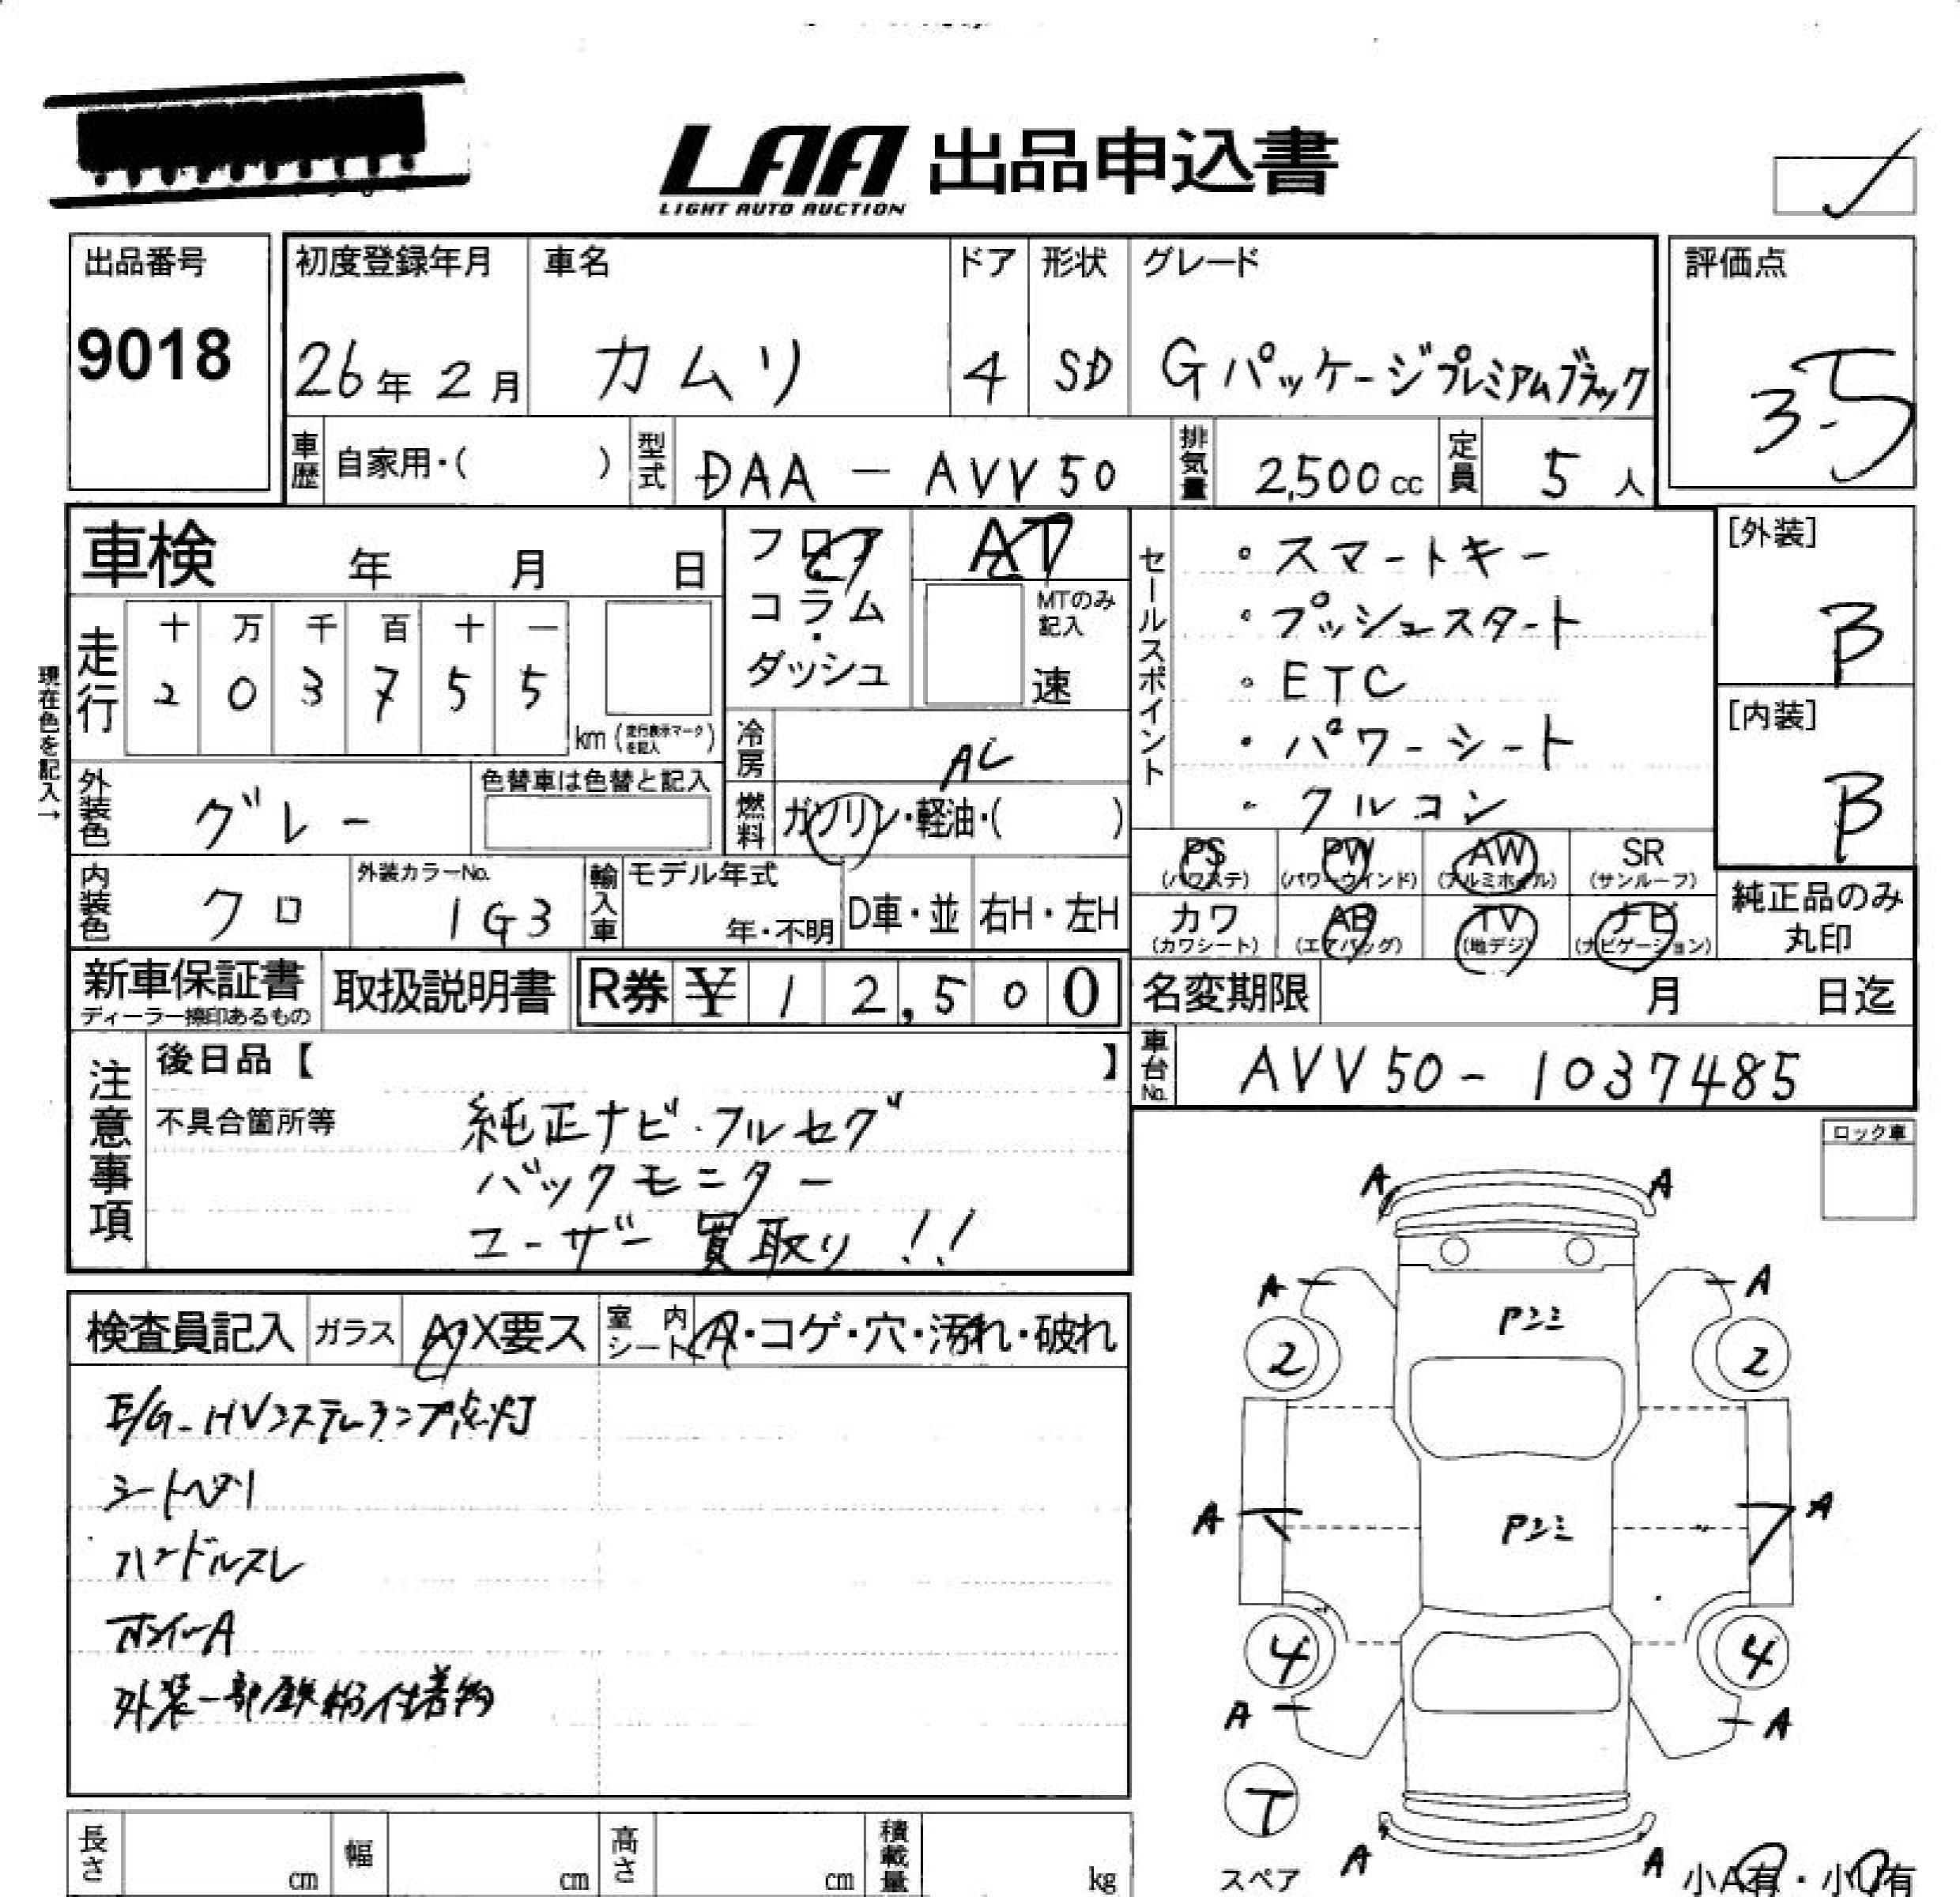 LAA 出品申込書
LIGHT AUTO AUCTION
出品番号
9018
初度登録年月
26年 2月
車名
カムリ
ドア
4
形状
SD
グレード
Gパッケージプレミアムブラック
評価点
3.5
車歴
自家用・( )
型式
DAA-AVV50
排気量
2,500cc
定員
5人
車検 年 月 日
フロア
・
コラム
・
ダッシュ
AT
MTのみ
記入
速
セールスポイント
・スマートキー
・プッシュスタート
・ETC
・パワーシート
・クルコン
[外装]
B
[内装]
B
現在色を記入→
走行
十 万 千 百 十 一
2 0 3 7 5 5
km(走行表示マークを記入)
冷房
AC
燃料
ガソリン・軽油・( )
外装色
グレー
色替車は色替と記入
内装色
クロ
外装カラーNo.
1G3
輸入車
モデル年式
年・不明
D車・並
右H・左H
PS
(パワステ)
PW
(パワーウインド)
AW
(アルミホイル)
SR
(サンルーフ)
カワ
(カワシート)
AB
(エアバッグ)
TV
(地デジ)
ナビ
(ナビゲーション)
純正品のみ
丸印
新車保証書
ディーラー捺印あるもの
取扱説明書
R券 ¥ 12,500
名変期限 月 日迄
車台No.
AVV50-1037485
注意事項
後日品【 】
不具合箇所等
純正ナビ・フルセグ
バックモニター
ユーザー買取り!!
ロック車
検査員記入
ガラス
A X要ス
室内
シート
A・コゲ・穴・汚れ・破れ
E/G-HVシステムランプ点灯
シートヘタリ
ハンドルスレ
ホイールA
外装一部鉄粉付着多
A A
A A
Pシミ
2 2
A A
Pシミ
4 4
A A
T
スペア
A A
小A有・小U有
長さ cm
幅 cm
高さ cm
積載量 kg